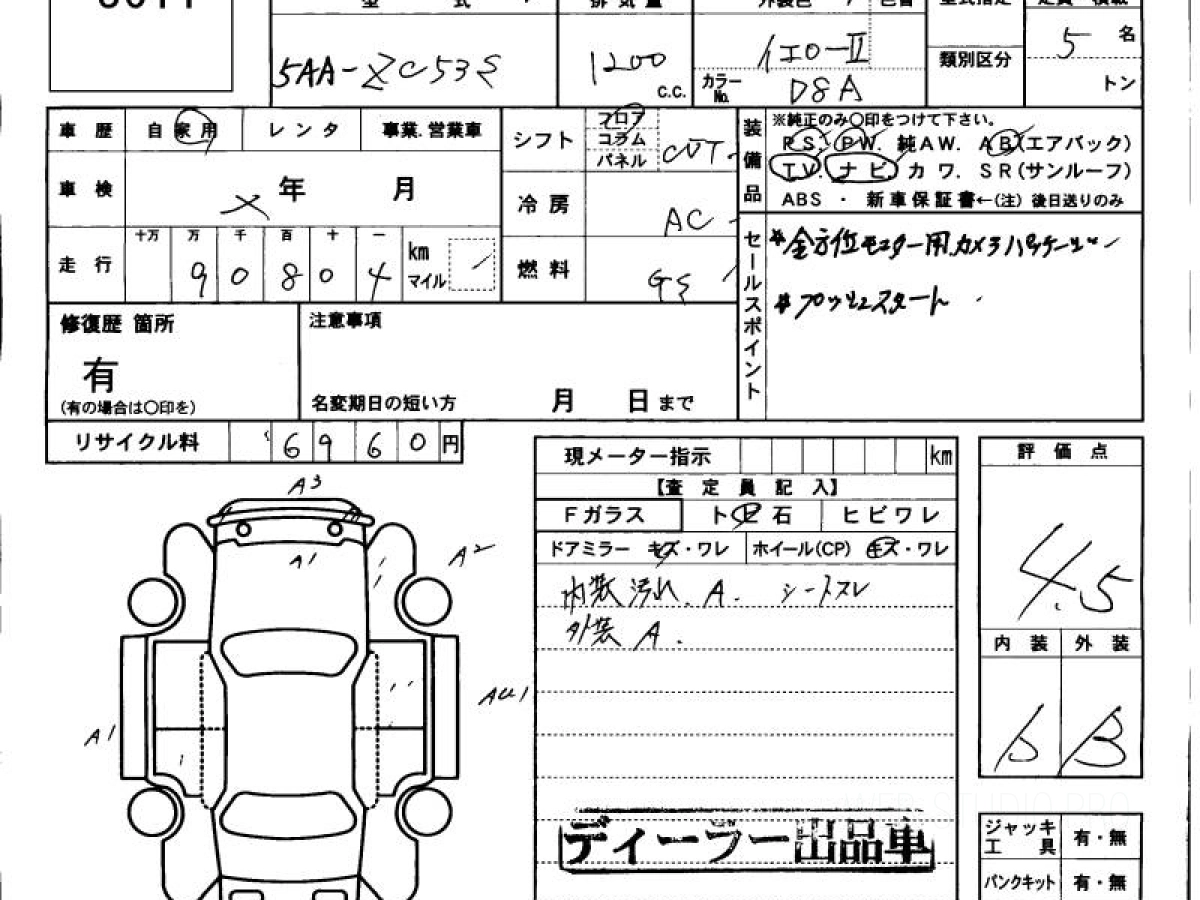 型 式 排気量 外装色 色替 型式指定 定員 積載
5AA-ZC53S 1200 c.c. イエローⅡ 5 名
カラーNo. D8A 類別区分 トン
車歴 自家用 レンタ 事業.営業車 シフト フロア コラム パネル CVT
装備品 ※純正のみ○印をつけて下さい。
PS. PW. 純AW. AB(エアバック)
TV. ナビ. カワ. SR(サンルーフ)
ABS ・ 新車保証書←(注) 後日送りのみ
車検 年 月 冷房 AC
十万 万 千 百 十 一
走行 9 0 8 0 4 km マイル 燃料 GS
セールスポイント
*全方位モニター用カメラパッケージ
*プッシュスタート
修復歴 箇所 注意事項
有
(有の場合は○印を) 名変期日の短い方 月 日 まで
リサイクル料 6 9 6 0 円
現メーター指示 km 評価点
【査定員記入】
Fガラス トビ石 ヒビワレ
ドアミラー キズ・ワレ ホイール(CP) キズ・ワレ
内装汚れ. A. シートスレ
外装 A.
4.5
内装 外装
B
A3
A1
A2
A1
AU1
ディーラー出品車
ジャッキ工具 有・無
パンクキット 有・無